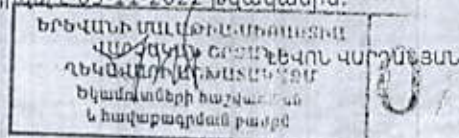 ԵՐԵՎԱՆԻ ՄԱԼԱԹԻԱ-ՍԵԲԱՍՏԻԱ
ՎԱՐՉԱԿԱՆ ՇՐՋԱՆ
ԼԵՎՈՆ ՎԱՐԴԱՆՅԱՆ
ՂԵԿԱՎԱՐԻ ԱՇԽԱՏԱԿԱԶՄ
Եկամուտների հաշվառման
և հավաքագրման բաժին